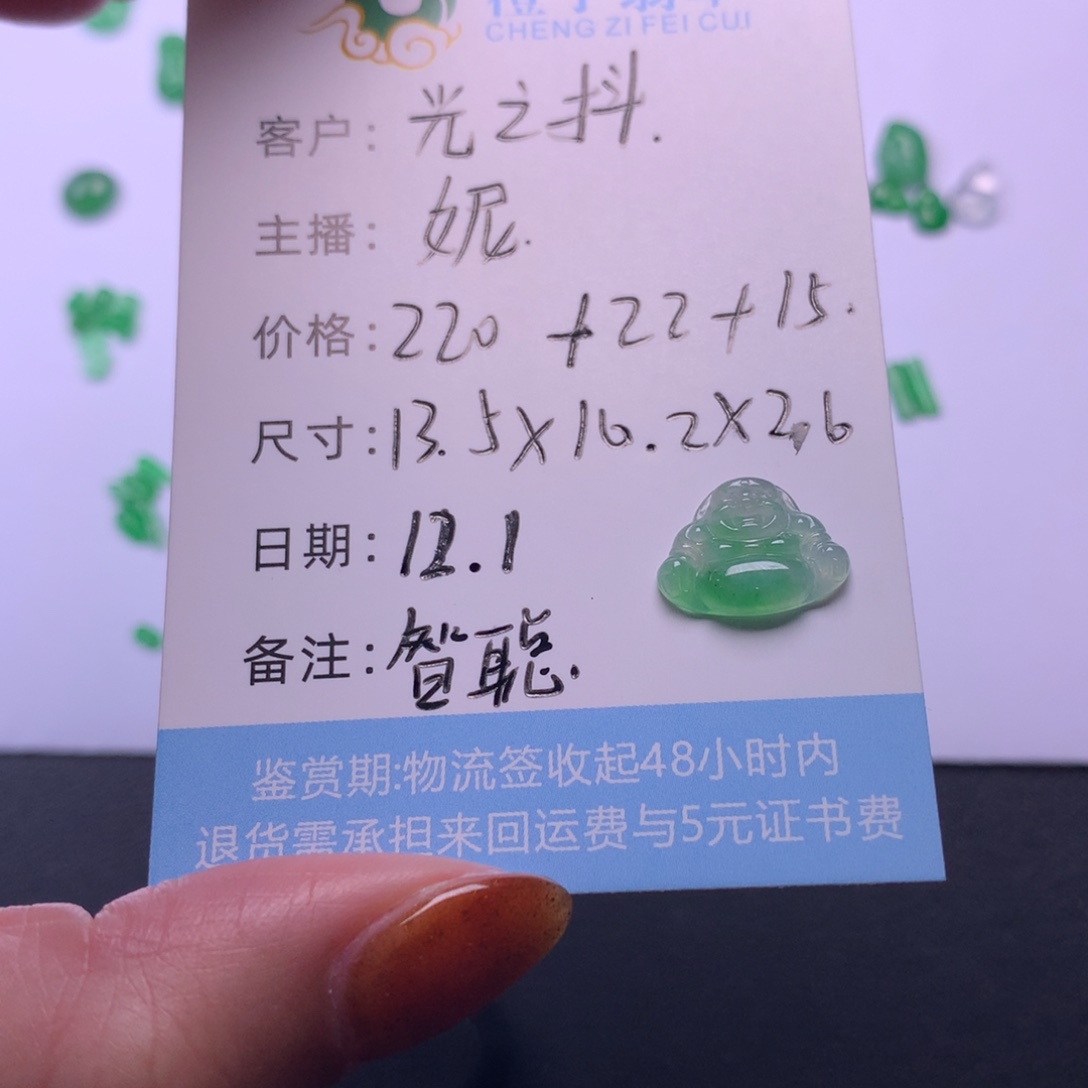 CHENG ZI FEI CUI
客户：光之抖.
主播：妮.
价格：220 +22+15.
尺寸：13.5×16.2×2.6
日期：12.1
备注：智聪.
鉴赏期:物流签收起48小时内
退货需承担来回运费与5元证书费